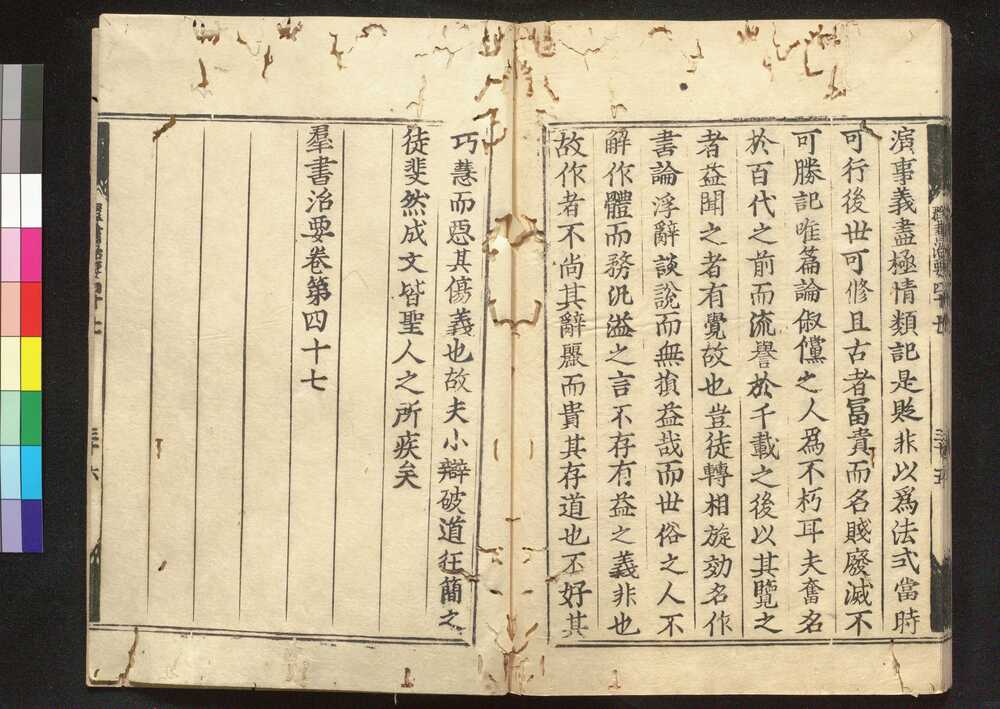 演事義盡極情類記是貶非以爲法式當時
可行後世可修且古者冨貴而名賤廢滅不
可勝記唯篇論俶儻之人爲不朽耳夫奮名
於百代之前而流譽於千載之後以其覽之
者益聞之者有覺故也豈徒轉相旋効名作
書論浮辭談說而無損益哉而世俗之人不
解作體而務汎溢之言不存有益之義非也
故作者不尚其辭麗而貴其存道也不好其
巧慧而惡其傷義也故夫小辯破道狂簡之
徒斐然成文皆聖人之所疾矣
羣書治要卷第四十七
羣書治要四十七
三十六